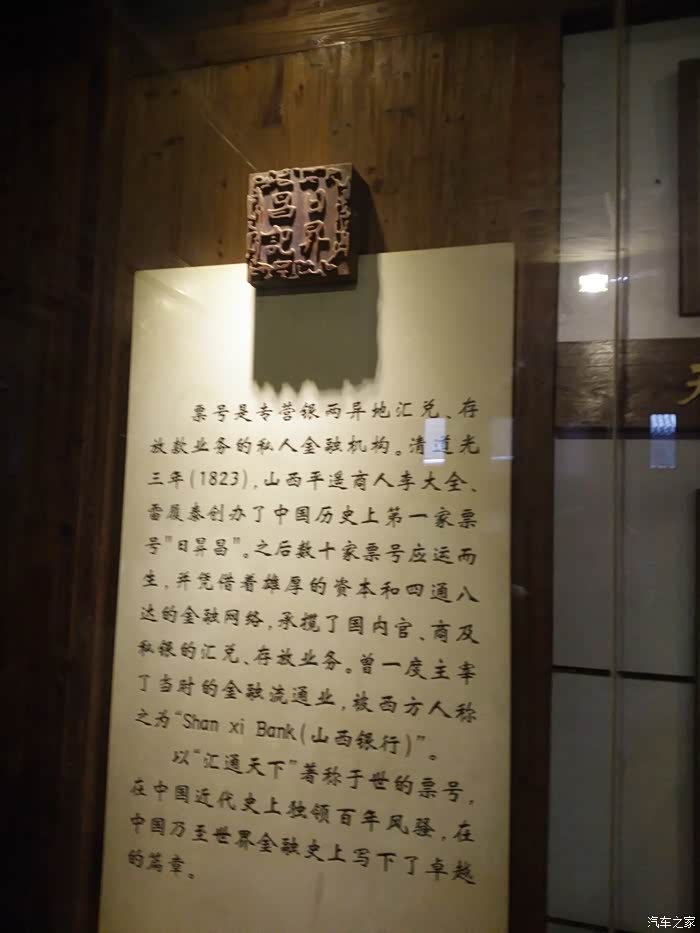 日昇
昌記
票号是专营银两异地汇兑、存
放款业务的私人金融机构。清道光
三年(1823)，山西平遥商人李大全、
雷履泰创办了中国历史上第一家票
号"日昇昌"。之后数十家票号应运而
生，并凭借着雄厚的资本和四通八
达的金融网络，承揽了国内官、商及
私银的汇兑、存放业务。曾一度主宰
了当时的金融流通业，被西方人称
之为"Shan xi Bank(山西银行)"。
以"汇通天下"著称于世的票号，
在中国近代史上独领百年风骚，在
中国乃至世界金融史上写下了卓越
的篇章。
汽车之家